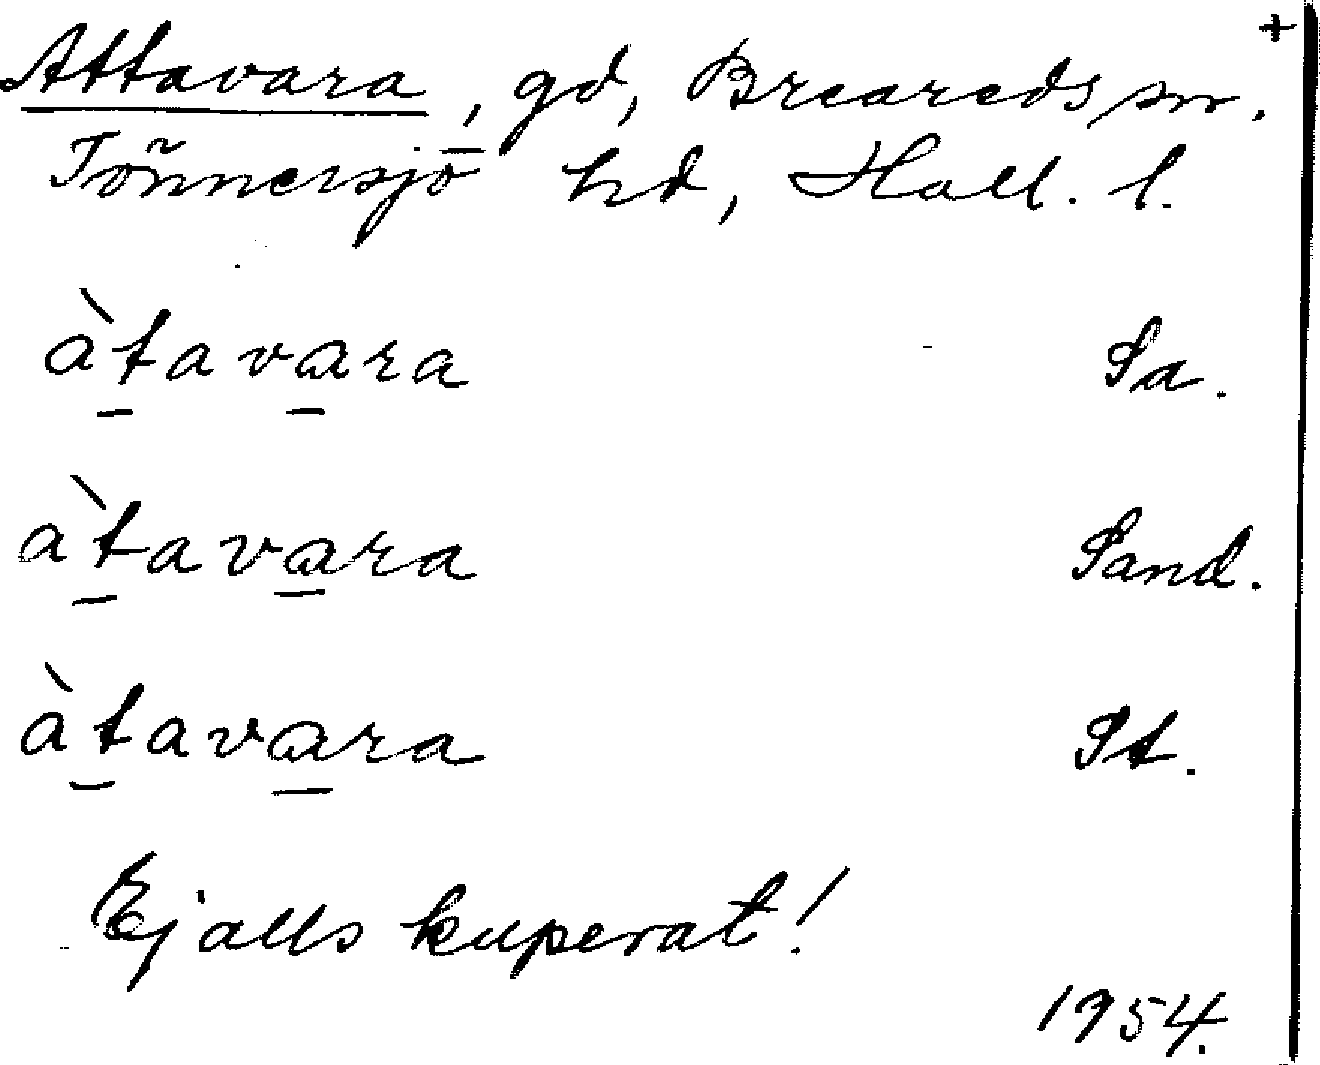 +
Attavara, gd, Breareds sn.
Tönnersjö hd, Hall. l.
àtavara Sa.
àtavara Sand.
àtavara St.
Ej alls kuperat!
1954.